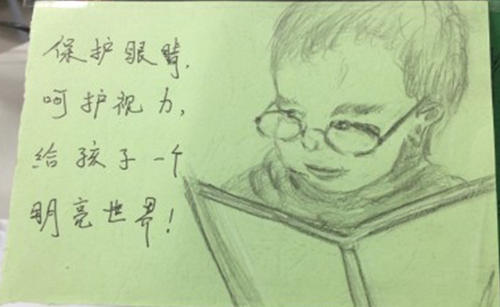 保护眼睛,
呵护视力,
给孩子一个
明亮世界!